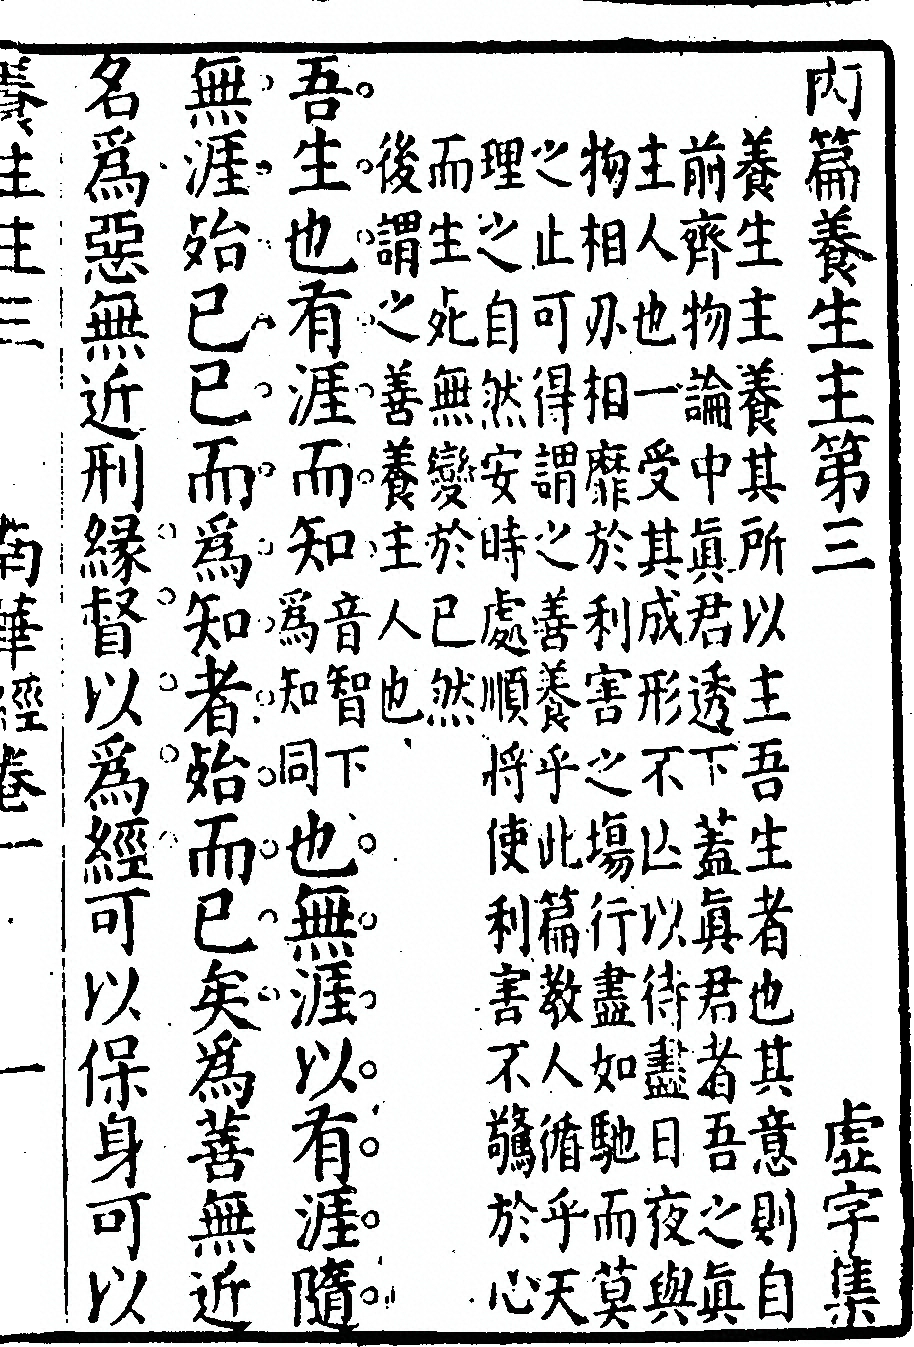 內篇養生主第三　虛字集
養生主養其所以主吾生者也其意則自
前齊物論中眞君透下蓋眞君者吾之眞
主人也一受其成形不亾以待盡日夜與
物相刃相靡於利害之塲行盡如馳而莫
之止可得謂之善養乎此篇敎人循乎天
理之自然安時處順將使利害不驚於心
而生死無變於已然
後謂之善養主人也
吾生也有涯而知音智下爲知同也無涯以有涯隨
無涯殆已已而爲知者殆而已矣爲善無近
名爲惡無近刑緣督以爲經可以保身可以
養生主三　南華經卷一　一